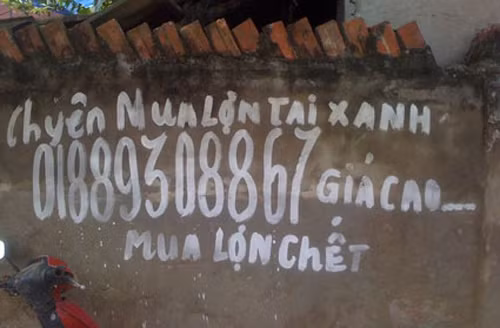 Chyên MUA LỢN TAI XANH
01889308867 GIÁ CAO....
MUA LỢN ChẾT